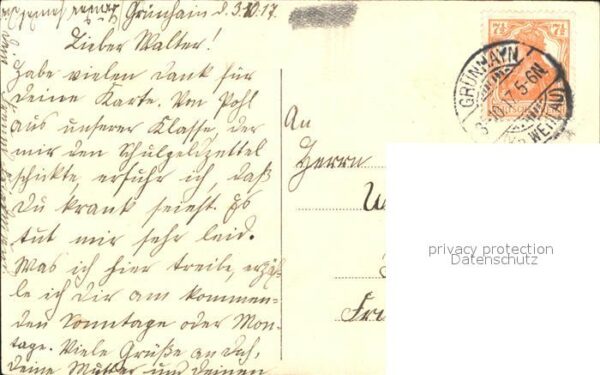 Grünhain d. 3.10.17.
Lieber Walter!
Habe vielen Dank für
Deine Karte. Von Pohl
aus unserer Klasse, der
mir den Schulgeldzettel
schickte, erfuhr ich, daß
Du krank seiest. Es
tut mir sehr leid.
Was ich hier treibe, erzäh-
le ich Dir am kommen-
den Sonntage oder Mon-
tage. Viele Grüße an Dich,
Deine Mutter und Deinen
An
Herrn
W
Fri
7½ 7½
GRÜNHAYN
3.10.17.5-6N
WEHLAU
privacy protection
Datenschutz